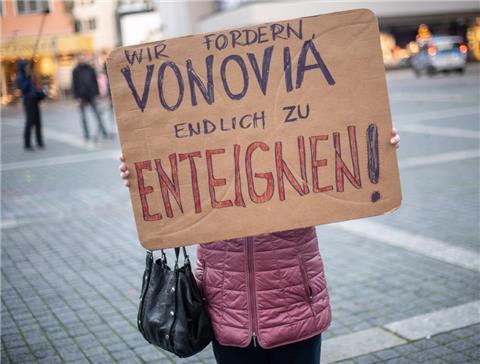 WIR FORDERN,
VONOVIA
ENDLICH ZU
ENTEIGNEN!